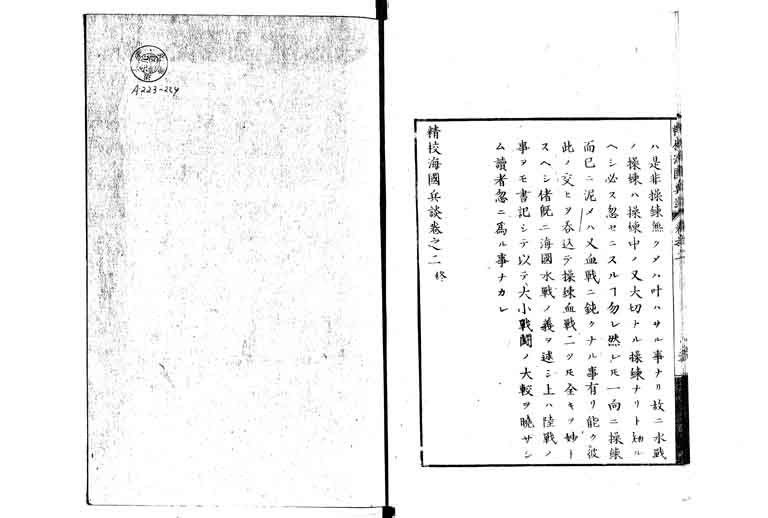 ハ是非操練無クメハ叶ハサル事ナリ故ニ水戦
ノ操練ハ操練中ノ又大切トル操練ナリト知ル
ヘシ必ス忽セニスルヿ勿レ然レ𪜈一向ニ操練
而已ニ泥メハ又血戦ニ鈍クナル事有リ能ク彼
此ノ交ヒヲ呑込テ操練血戦二ツ𪜈全キヲ妙ト
スヘシ偖既ニ海國水戦ノ義ヲ述シ上ハ陸戦ノ
事ヲモ書記シテ以テ大小戦闘ノ大較ヲ暁サシ
ム讀者忽ニ為ル事ナカレ
精校海國兵談卷之二 終
A223-224